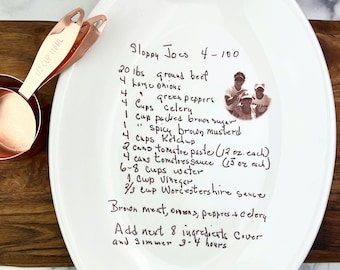 Sloppy Joes 4-100
20 lbs ground beef
4 large onions
4 " green peppers
4 cups celery
1 cup packed brown sugar
1 " spicy brown musterd
4 cups Ketchup
2 cans tomatoe paste (12 oz each)
4 cans tomatoe sauce (15 oz each)
6-8 cups water
1 cup vinegar
2/3 cup Worcestershire sauce
Brown meat, onions, peppers + celery
Add next 8 ingredients cover
and simmer 3-4 hours